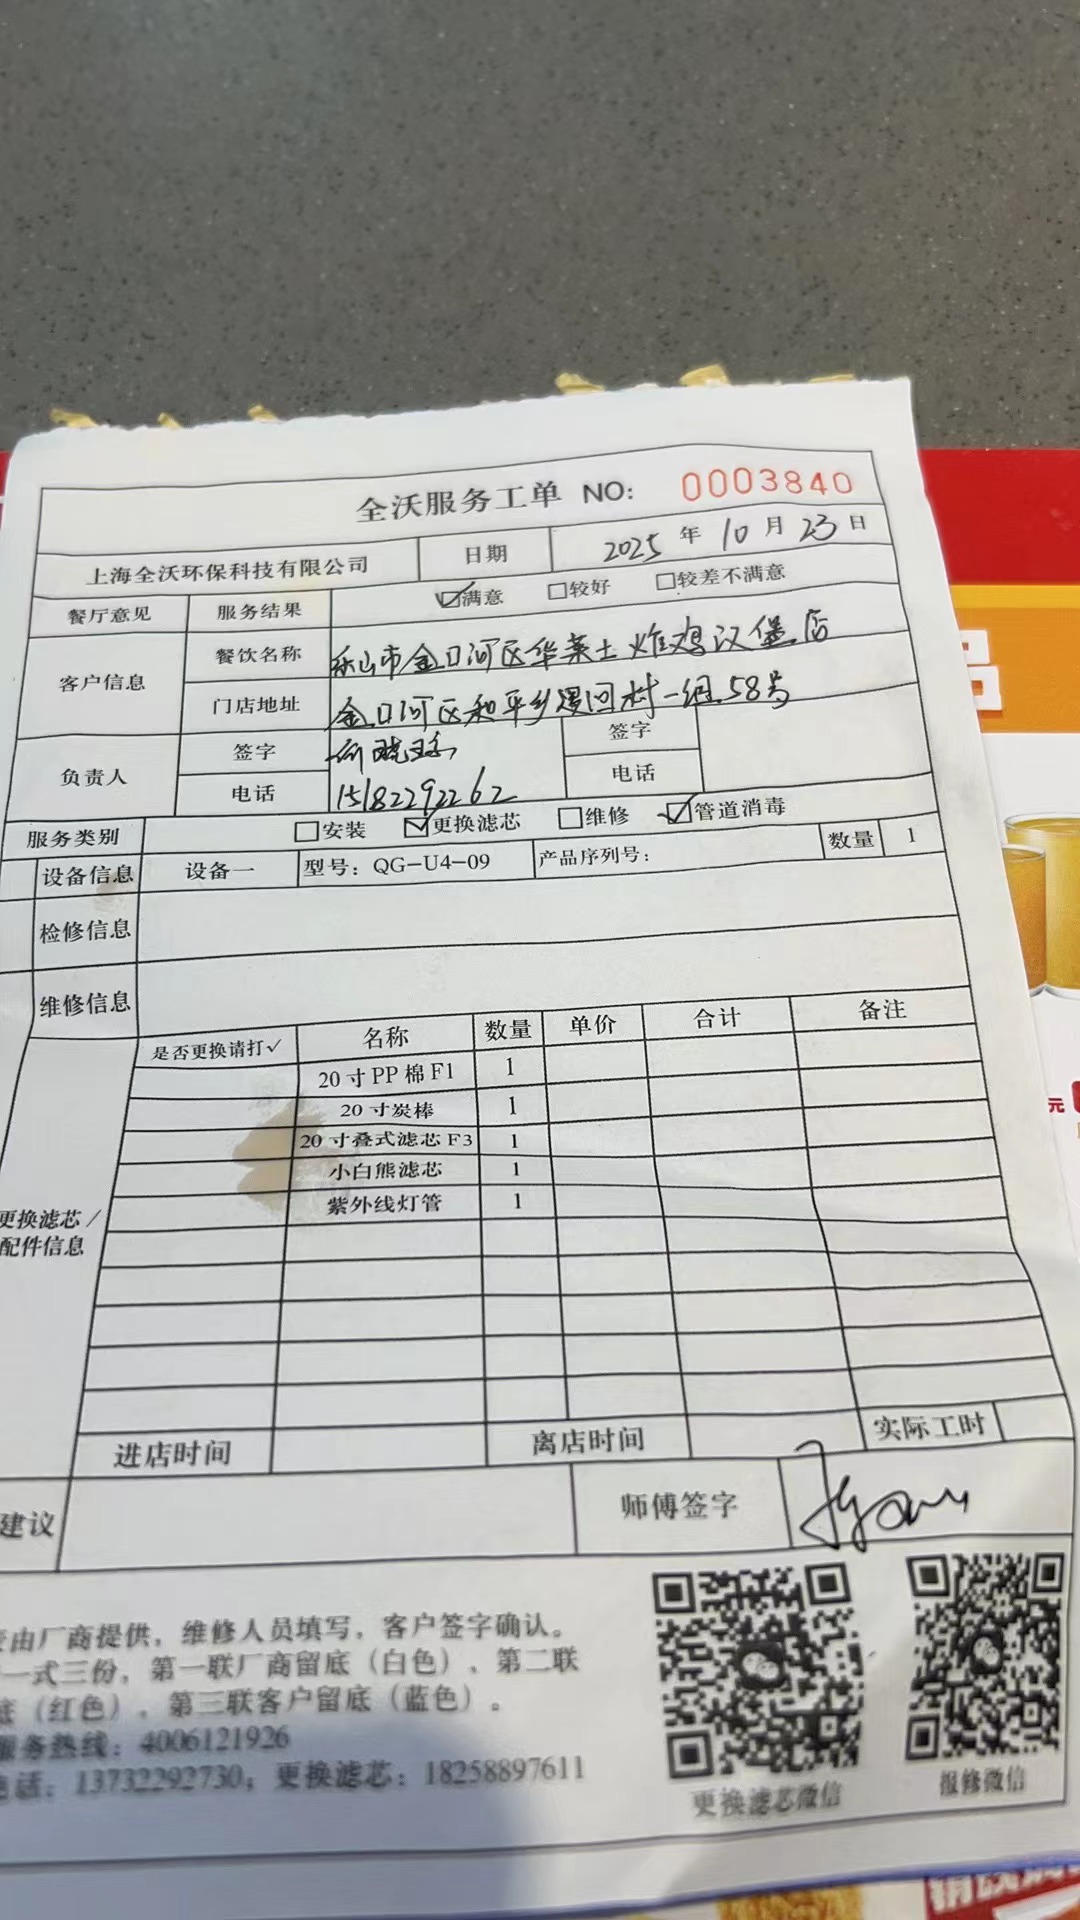 全沃服务工单 NO: 0003840
上海全沃环保科技有限公司 日期 2025年10月23日
餐厅意见 服务结果 ☑满意 □较好 □较差不满意
客户信息 餐饮名称 乐山市金口河区华莱士炸鸡汉堡店
门店地址 金口河区和平乡迴村一组58号
负责人 签字 签字
电话 15182292262 电话
服务类别 □安装 ☑更换滤芯 □维修 ☑管道消毒
设备信息 设备一 型号：QG-U4-09 产品序列号： 数量 1
检修信息
维修信息
是否更换请打✓ 名称 数量 单价 合计 备注
20寸PP棉F1 1
20寸炭棒 1
20寸叠式滤芯F3 1
小白熊滤芯 1
紫外线灯管 1
更换滤芯/
配件信息
进店时间 离店时间 实际工时
建议 师傅签字
由厂商提供，维修人员填写，客户签字确认。
一式三份，第一联厂商留底（白色）、第二联
底（红色）、第三联客户留底（蓝色）。
服务热线：4006121926
电话：13732292730；更换滤芯：18258897611
更换滤芯微信 报修微信
元